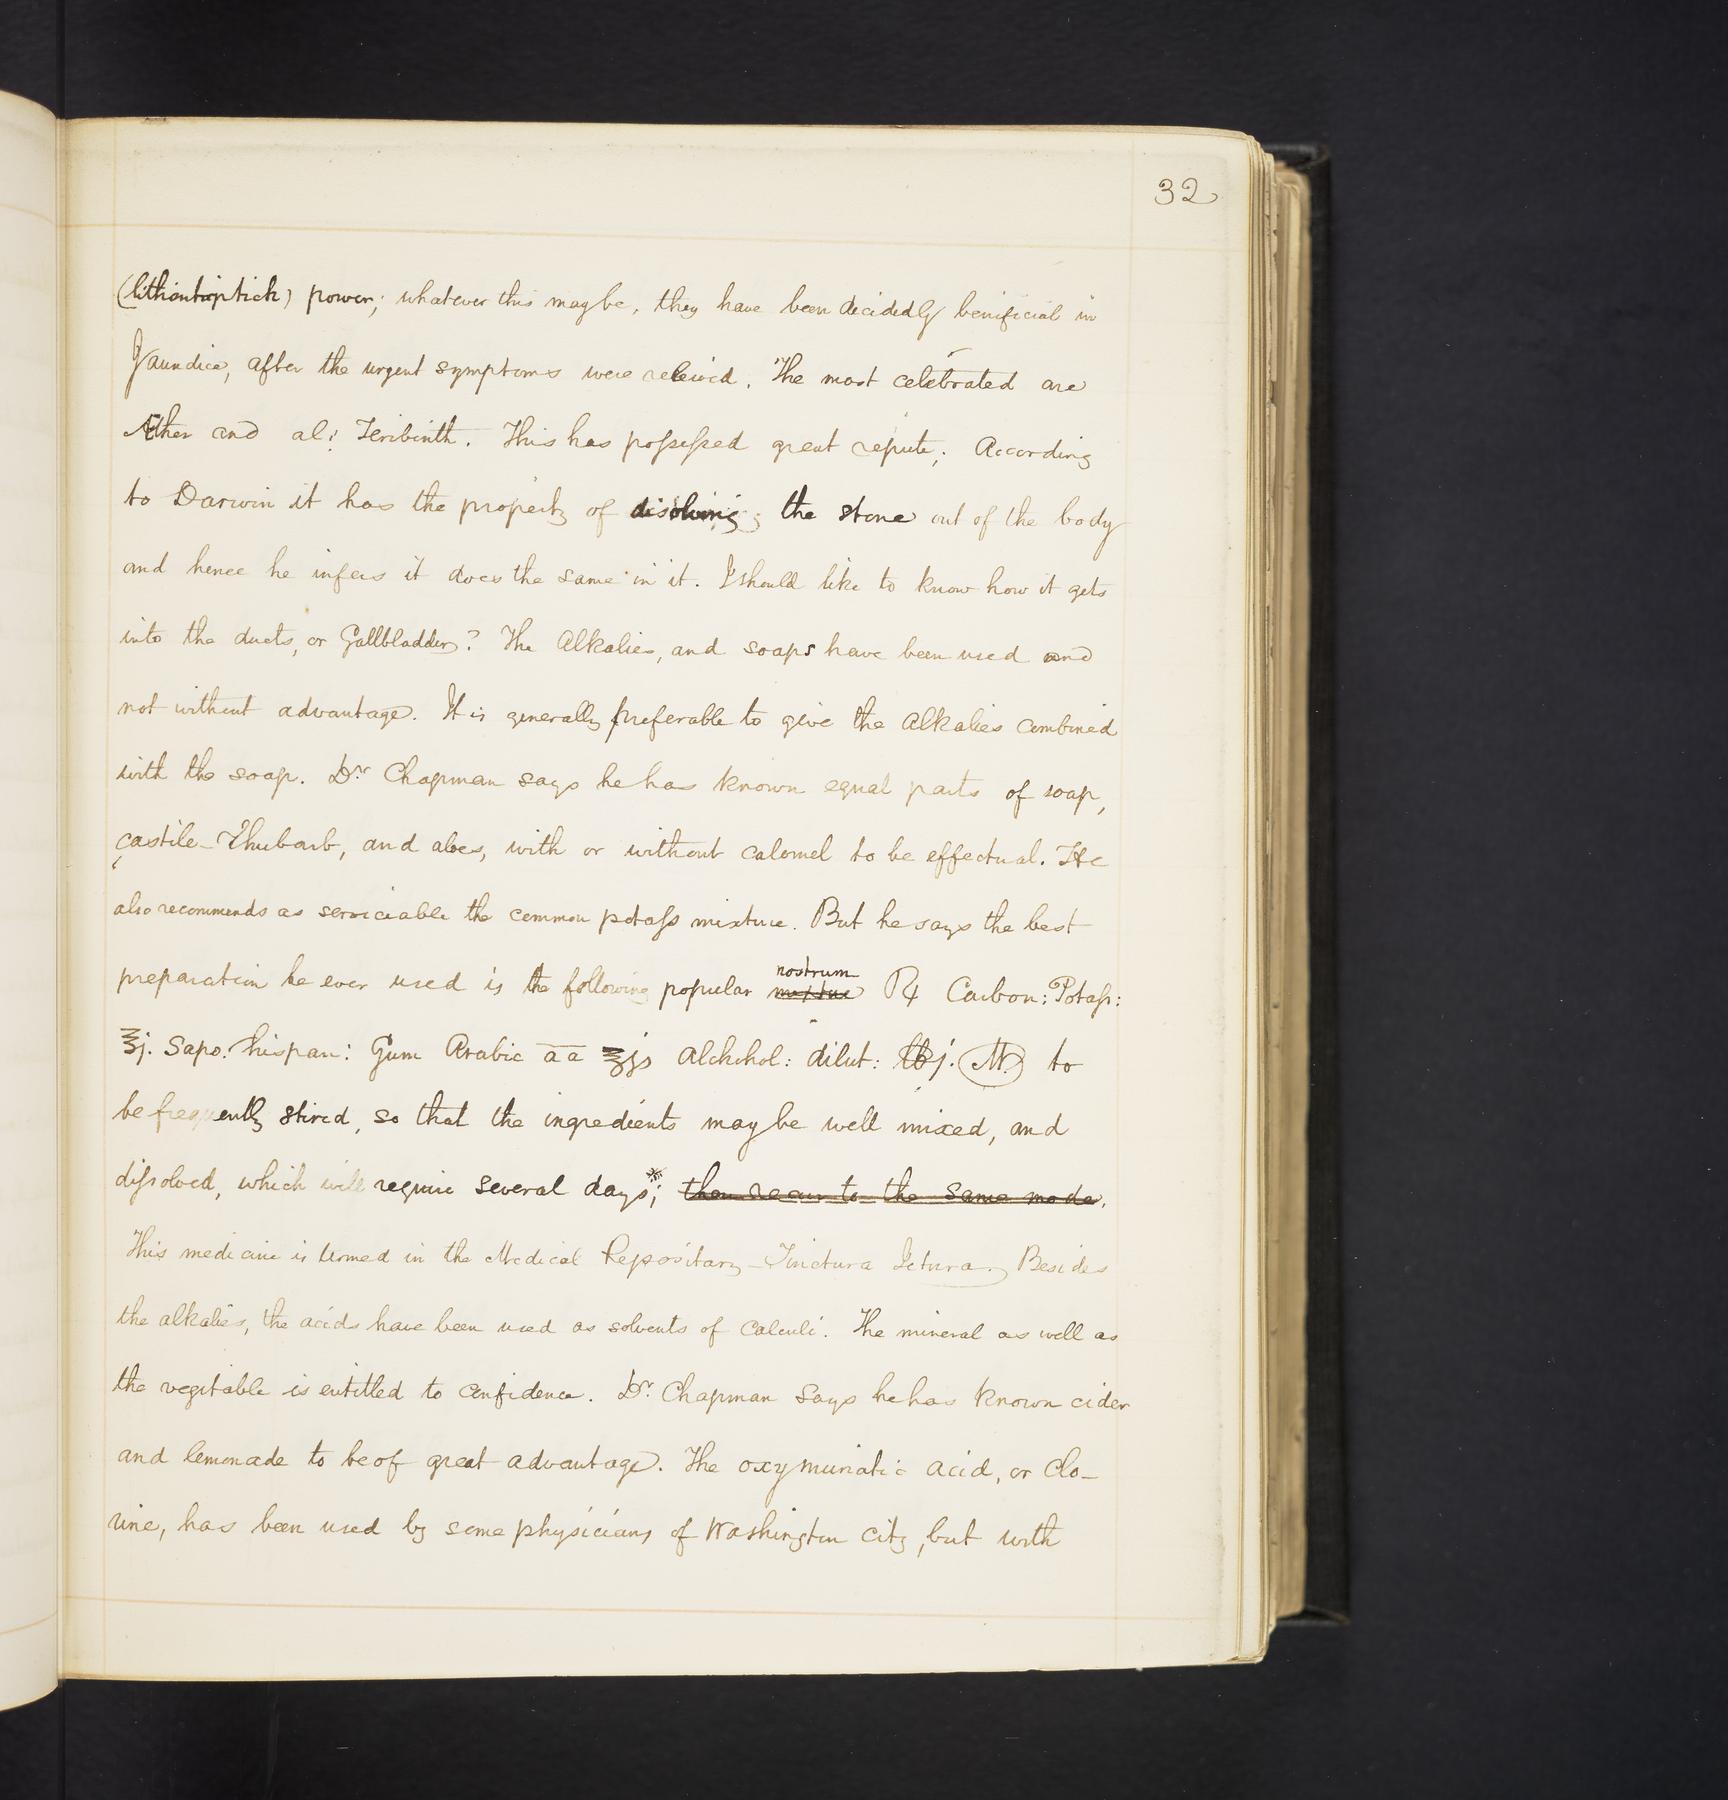 32
(lithiontriptick) power; whatever this may be, they have been decidedly benificial in
Jaundice, after the urgent symptoms were releived. The most celebrated are
Æther and al: Teribinth. This has possessed great repute; According
to Darwin it has the property of disolving the stone out of the body
and hence he infers it does the same in it. I should like to know how it gets
into the ducts, or Gallbladder? The Alkalies, and soaps have been used and
not without advantage. It is generally preferable to give the alkalies combined
with the soap. Dr Chapman says he has known equal parts of soap,
castile - Rhubarb, and aloes, with or without calomel to be effectual. He
also recommends as serviciable the common potass mixture. But he says the best
preparation he ever used is the following popular nostrum ℞ Carbon: Potass:
℥j. Sapo. hispan: Gum Arabic a a ℥js Alchohol: dilut: lbj. M. to
be frequently stired, so that the ingredients may be well mixed, and
dissolved, which will require several days*; then recur to the same mode.
This medicine is termed in the Medical Repository - Tinctura Ictura. Besides
the alkalies, the acids have been used as solvents of calculi. The mineral as well as
the vegitable is entitled to confidence. Dr. Chapman says he has known cider
and lemonade to be of great advantage. The oxymuriatic acid, or Clo-
rine, has been used by some physicians of Washington city, but with